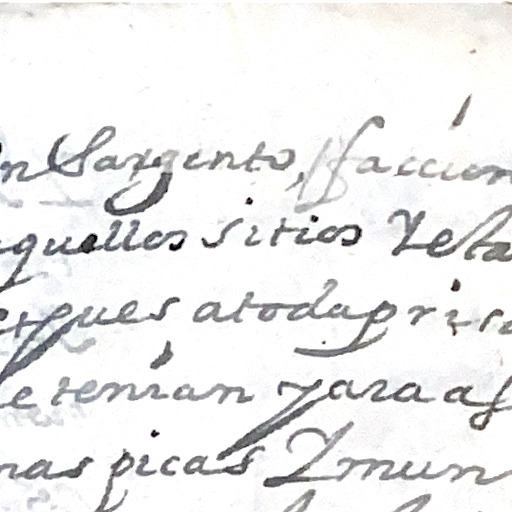 n Sargento, facción
aquellos sitios Yesta
espues atodaprisa
e tenían para as
nas picas Y mun